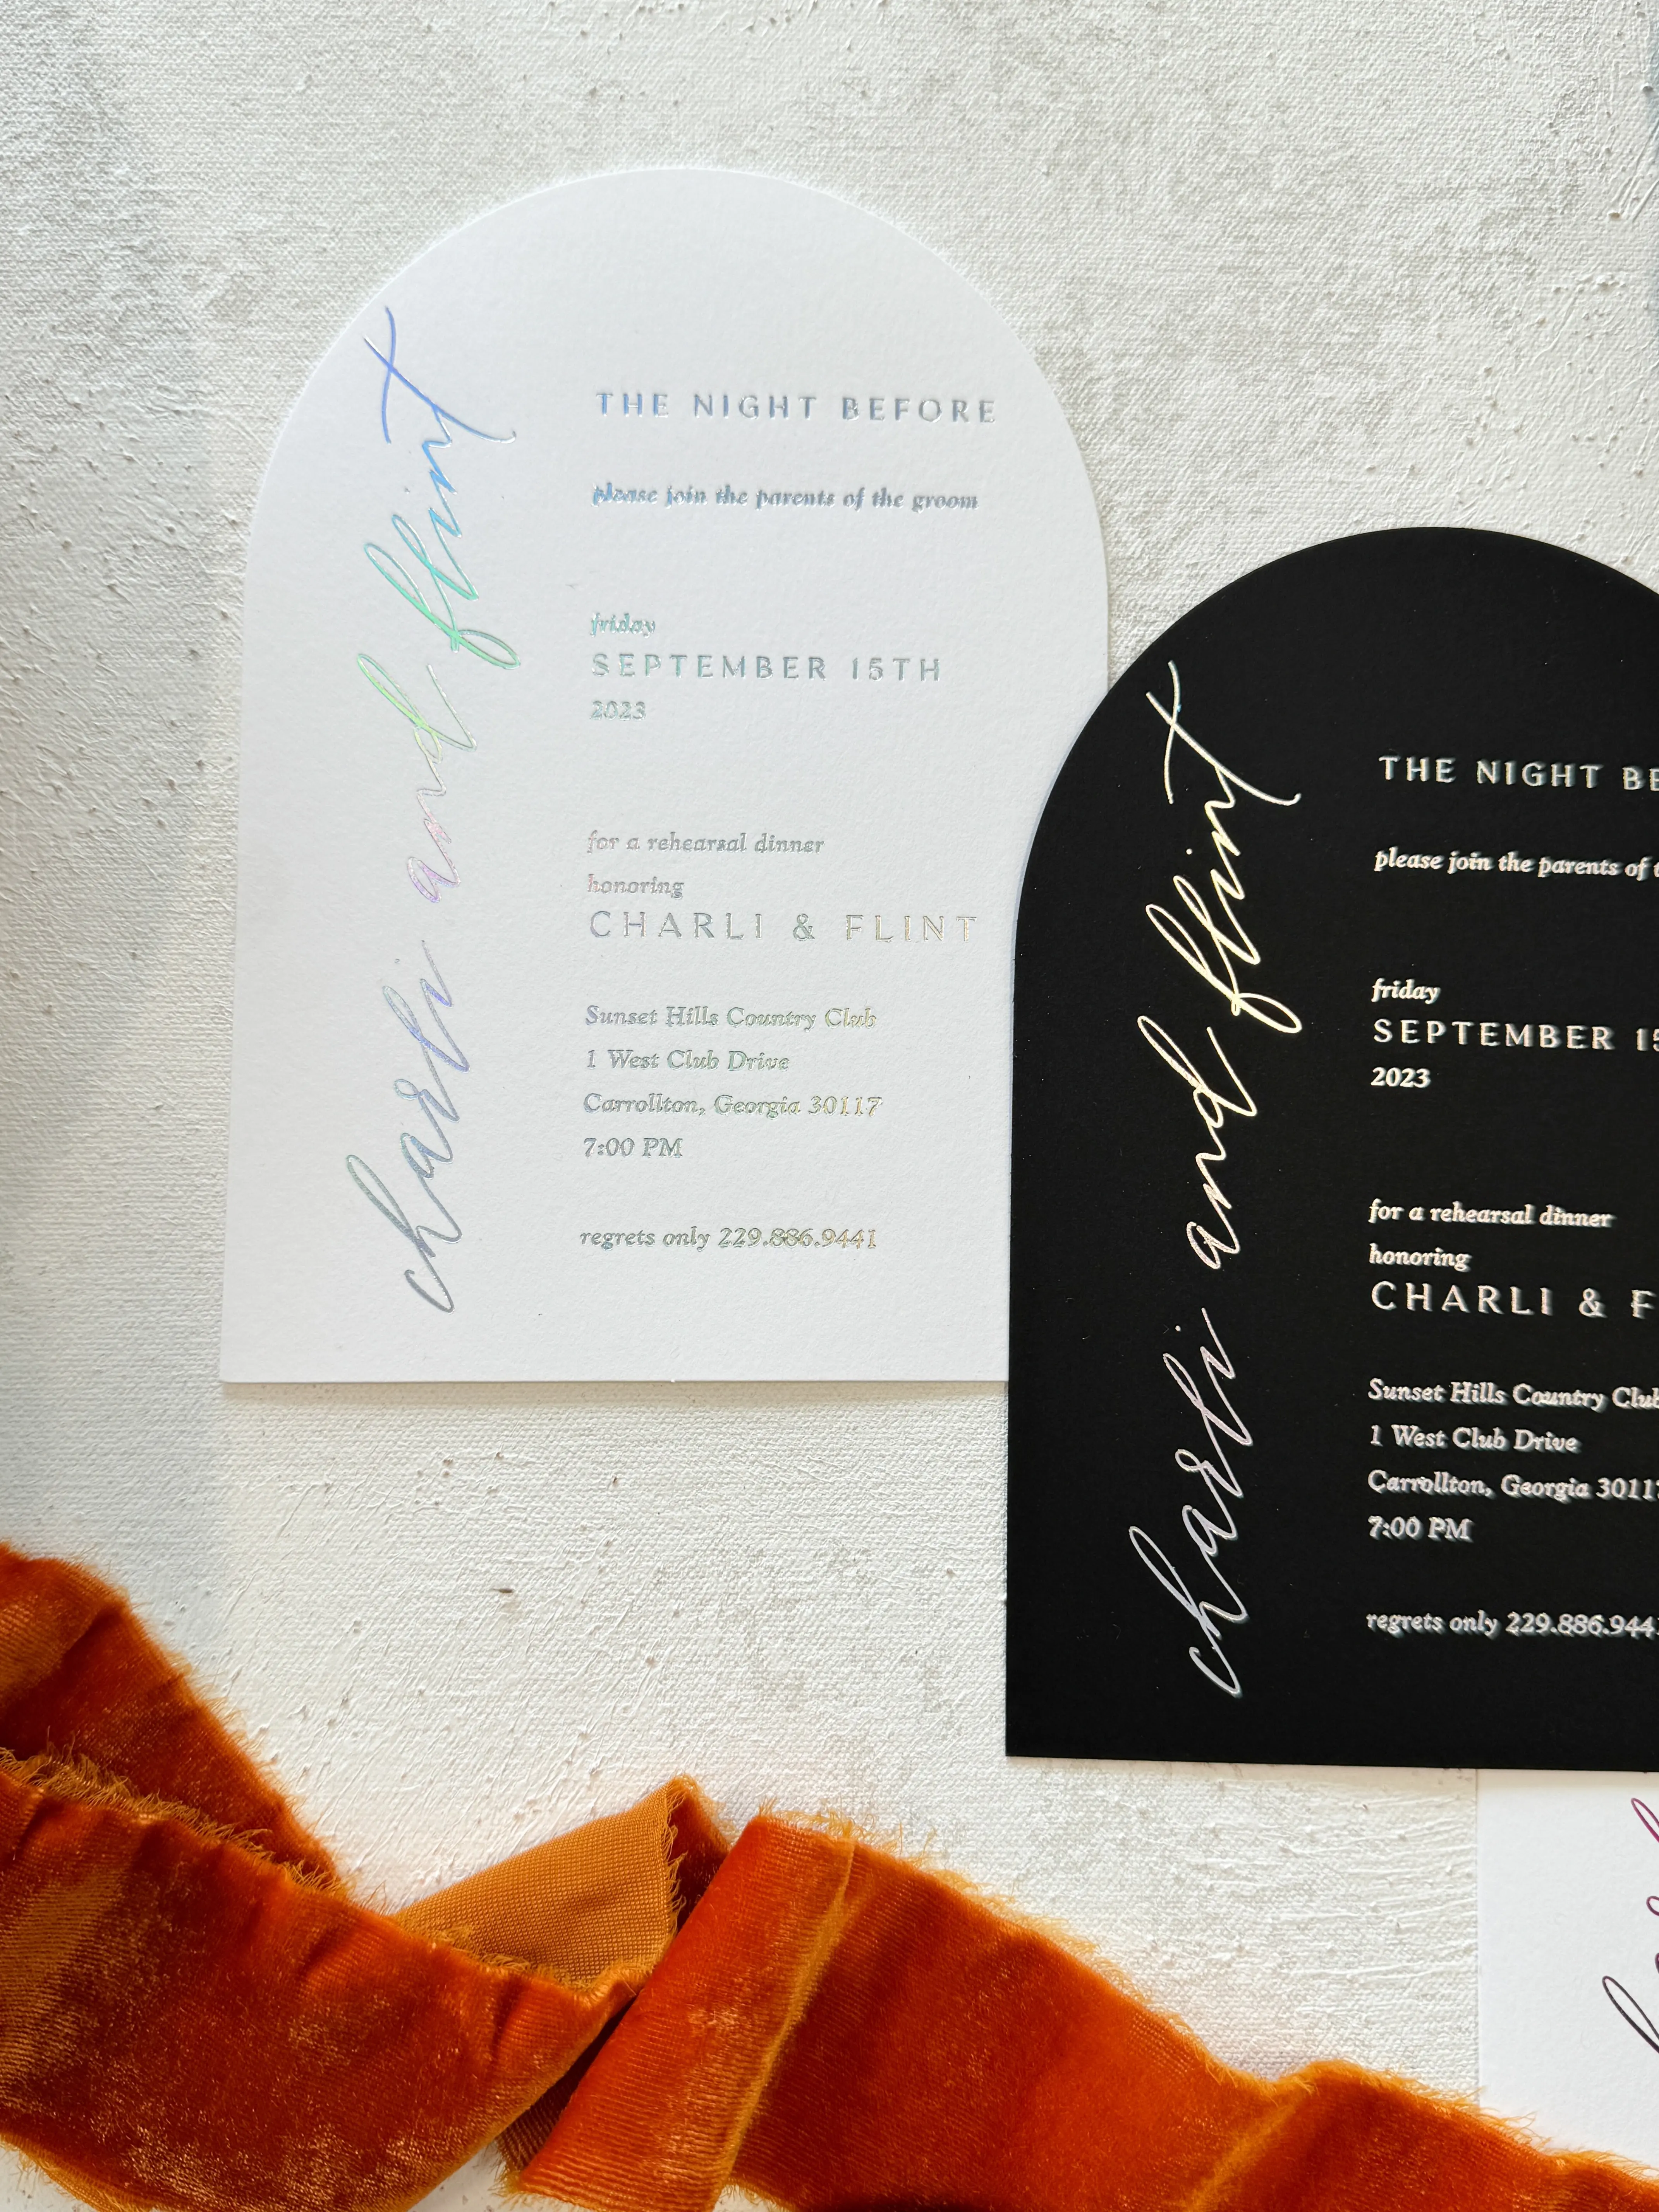 charli and flint
THE NIGHT BEFORE
please join the parents of the groom
friday
SEPTEMBER 15TH
2023
for a rehearsal dinner
honoring
CHARLI & FLINT
Sunset Hills Country Club
1 West Club Drive
Carrollton, Georgia 30117
7:00 PM
regrets only 229.886.9441
charli and flint
THE NIGHT BE
please join the parents of t
friday
SEPTEMBER 15
2023
for a rehearsal dinner
honoring
CHARLI & F
Sunset Hills Country Club
1 West Club Drive
Carrollton, Georgia 30117
7:00 PM
regrets only 229.886.944